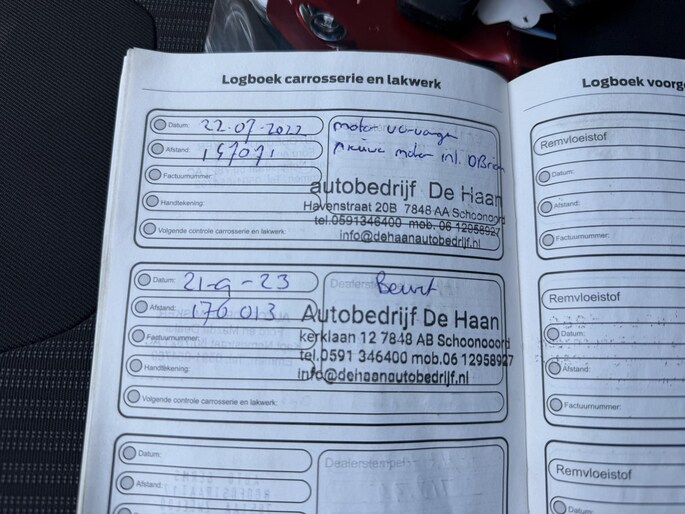 Logboek carrosserie en lakwerk
Datum: 22-07-2022
motor vervangen
Afstand: 157071
nieuwe motor inl.
Factuurnummer:
autobedrijf De Haan
Handtekening:
Havenstraat 20B 7848 AA Schoonoord
tel.0591346400 mob. 06 12958927
Volgende controle carrosserie en lakwerk:
info@dehaanautobedrijf.nl
Datum: 21-9-23
Dealerstempel
Beurt
Afstand: 170013
Autobedrijf De Haan
Factuurnummer:
kerklaan 12 7848 AB Schoonoord
tel.0591 346400 mob.06 12958927
Handtekening:
info@dehaanautobedrijf.nl
Volgende controle carrosserie en lakwerk:
Datum:
Dealerstempel
Afstand:
Logboek
Remvloeistof
Datum:
Afstand:
Factuurnummer:
Remvloeistof
Datum:
Afstand:
Factuurnummer:
Remvloeistof
Datum: